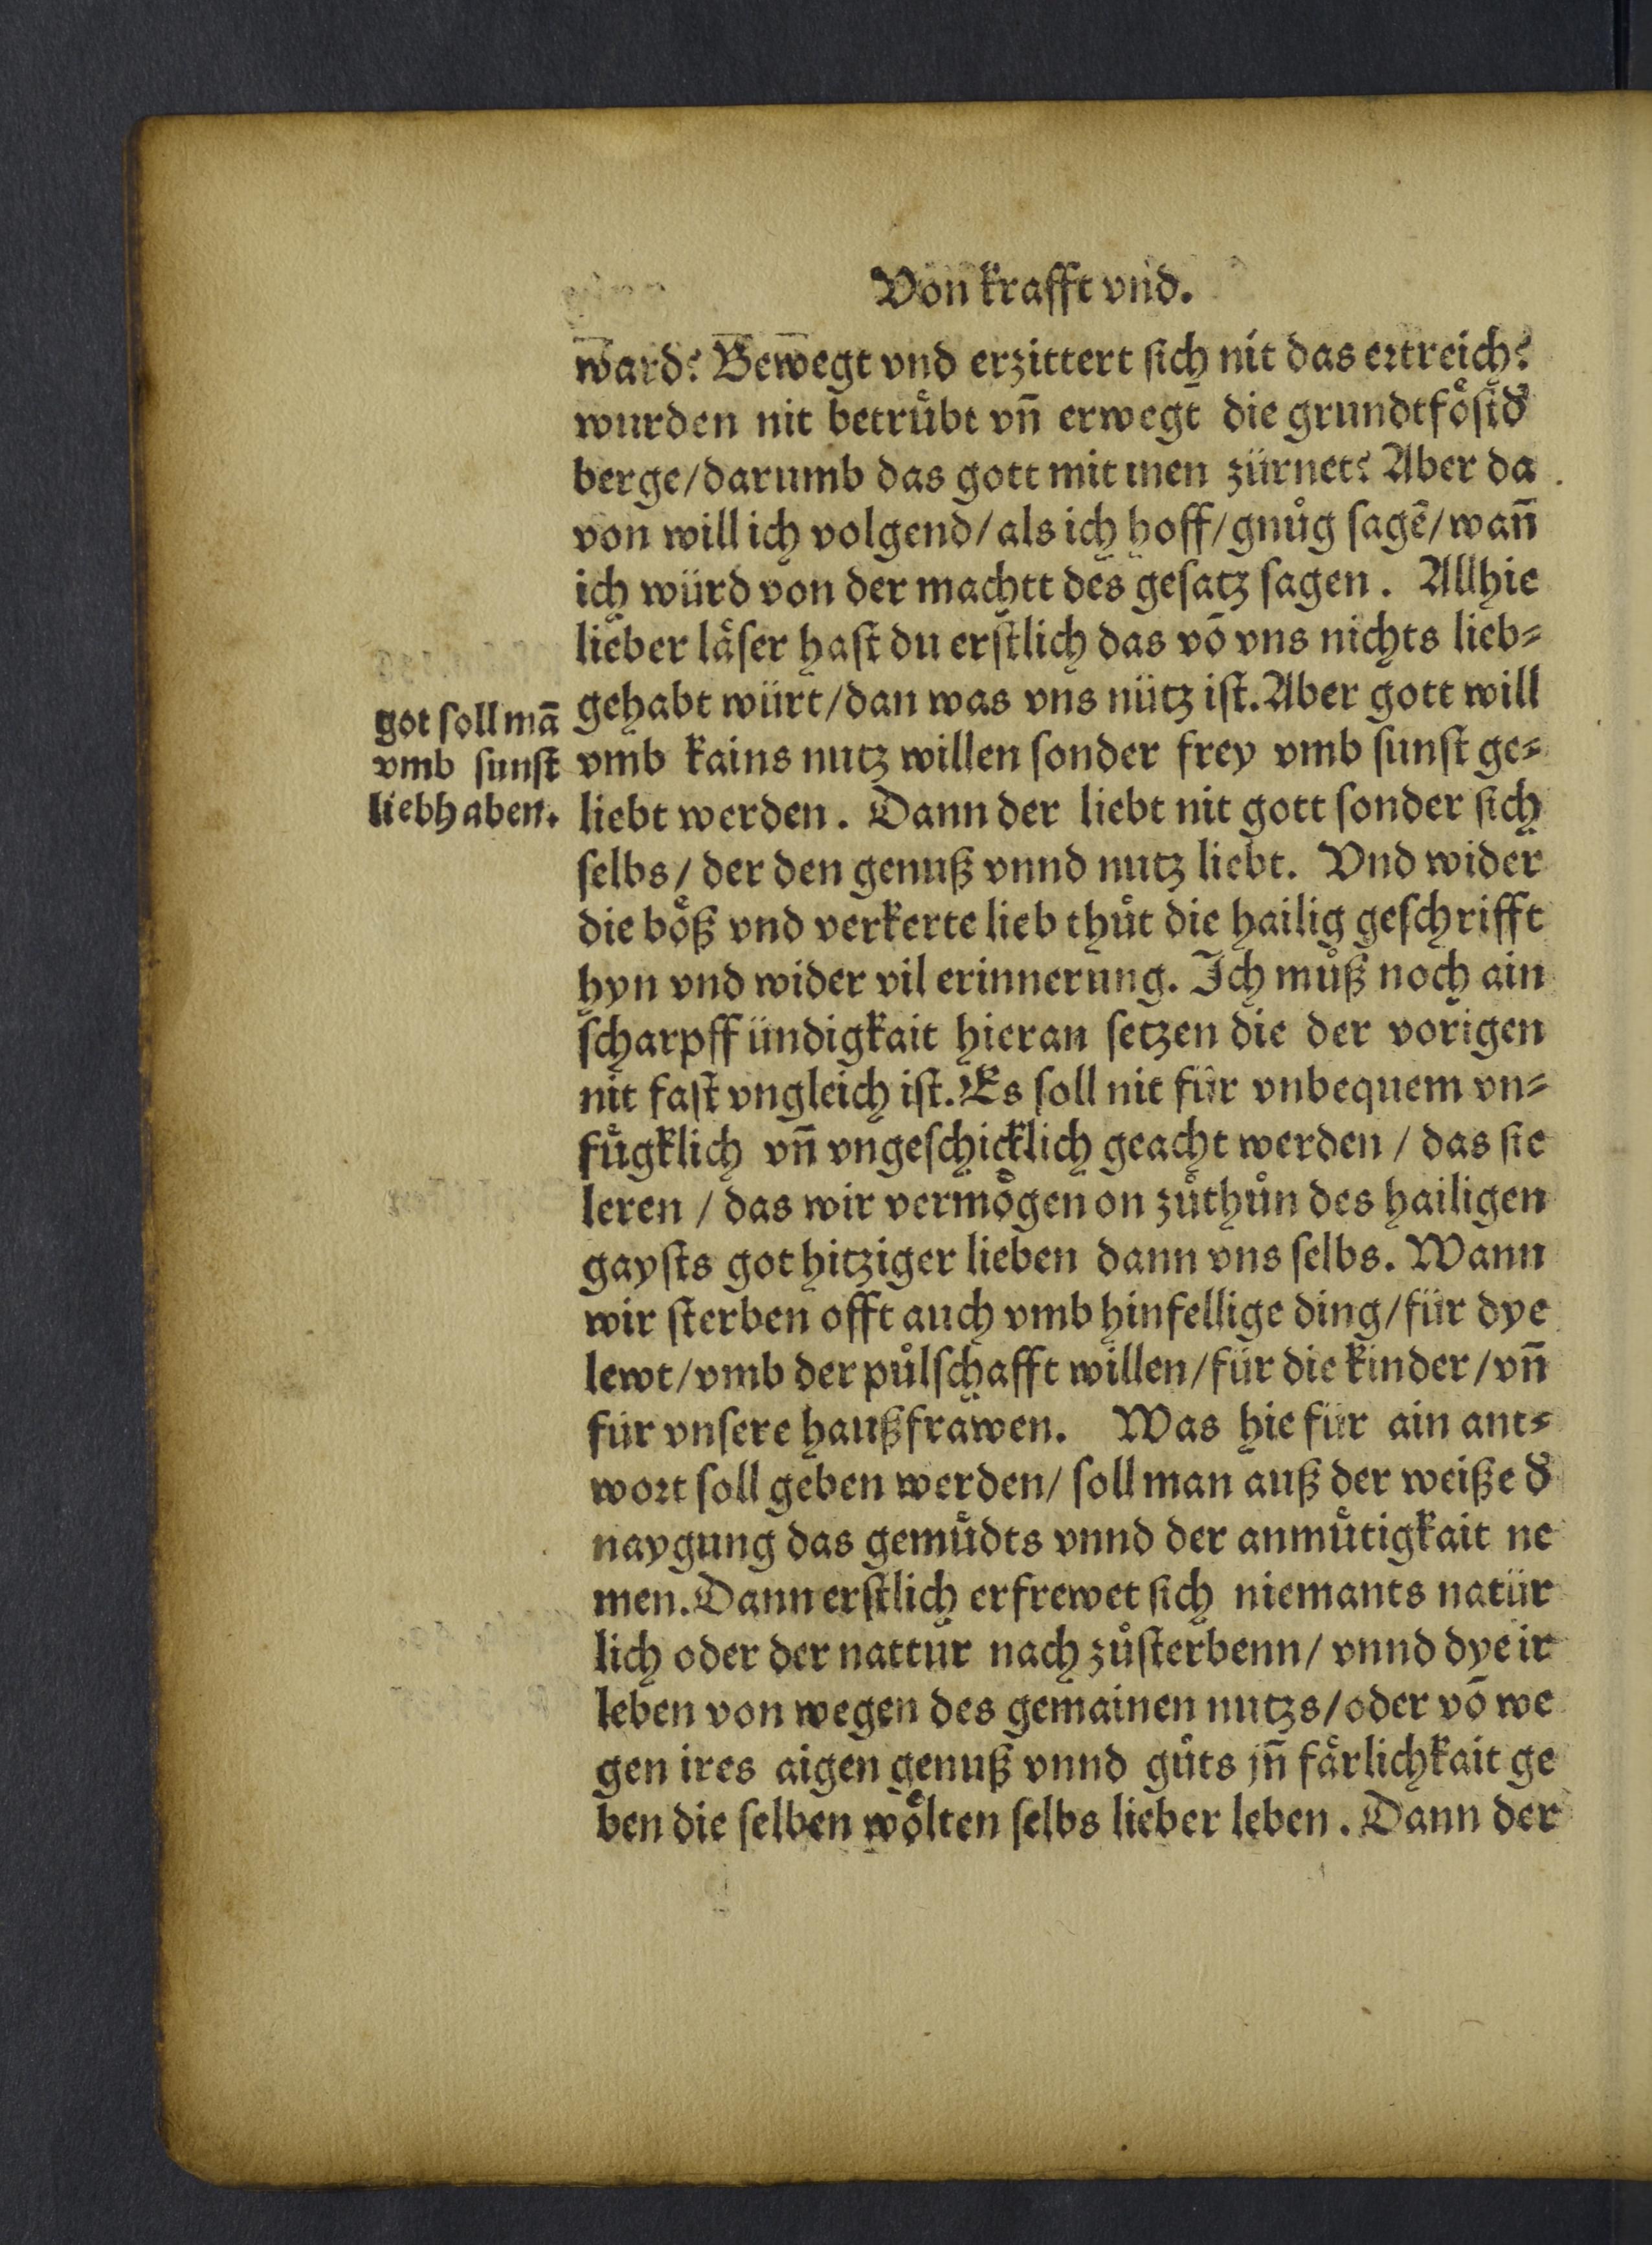 Von krafft vnd.
ward? Bewegt vnd erzittert ſich nit das ertreich?
wurden nit betruͤbt vñ erwegt die grundtfoͤſtđ
berge/darumb das gott mit inen zürnet? Aber da
von will ich volgend/als ich hoff/gnuͦg ſagē/wañ
ich würd von der machtt des geſatz ſagen. Allhie
lieber laͤſer haſt du erſtlich das vō vns nichts lieb⸗
gehabt würt/dan was vns nütz iſt. Aber gott will
got ſoll mā
vmb ſunſt
liebhaben.
vmb kains nutz willen ſonder frey vmb ſunſt ge⸗
liebt werden. Dann der liebt nit gott ſonder ſich
ſelbs/ der den genuß vnnd nutz liebt. Vnd wider
die boͤß vnd verkerte lieb thuͦt die hailig geſchrifft
hyn vnd wider vil erinnerung. Ich muͦß noch ain
ſcharpff ündigkait hieran ſetzen die der vorigen
nit faſt vngleich iſt. Es ſoll nit für vnbequem vn⸗
fuͤgklich vñ vngeſchicklich geacht werden / das ſie
leren / das wir vermoͤgen on zuͦthuͦn des hailigen
gayſts got hitziger lieben dann vns ſelbs. Wann
wir ſterben offt auch vmb hinfellige ding/für dye
lewt/vmb der puͦlſchafft willen/für die kinder/vñ
für vnſere haußfrawen. Was hie für ain ant⸗
wort ſoll geben werden/ ſoll man auß der weiße đ
naygung das gemuͤdts vnnd der anmuͤtigkait ne
men. Dann erſtlich erfrewet ſich niemants natür
lich oder der nattur nach zuͦſterbenn/ vnnd dye ir
leben von wegen des gemainen nutzs/oder vō we
gen ires aigen genuß vnnd guͦts jñ faͤrlichkait ge
ben die ſelben woͤlten ſelbs lieber leben. Dann der